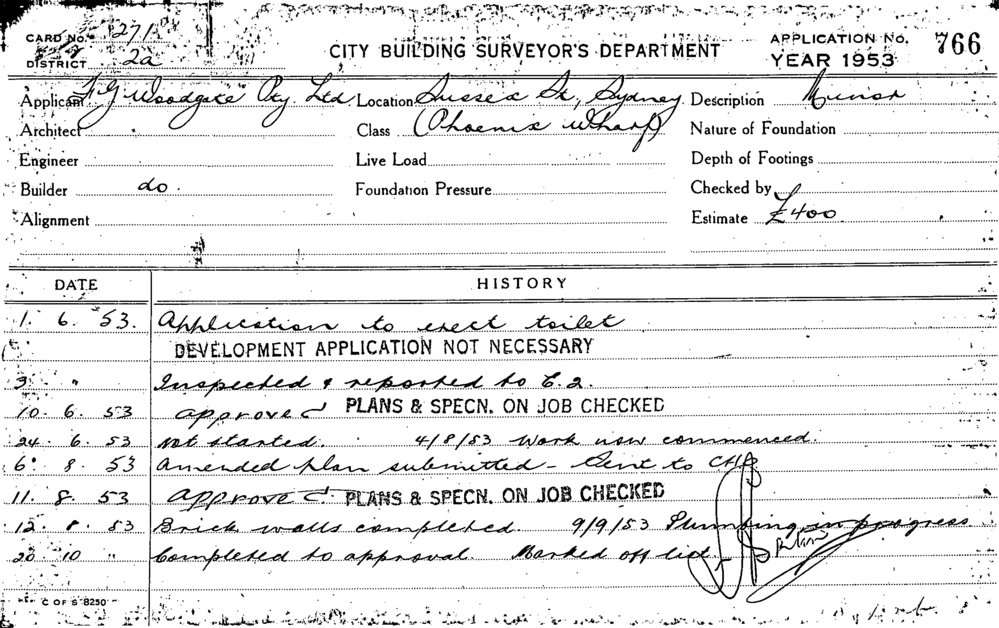 CARD No. 271
DISTRICT 2a
CITY BUILDING SURVEYOR'S DEPARTMENT
APPLICATION No. 766
YEAR 1953
Applicant F G Woodgate Pty Ltd Location Sussex St, Sydney Description Minor
Architect Class (Phoenix Wharf) Nature of Foundation
Engineer Live Load Depth of Footings
Builder do. Foundation Pressure Checked by
Alignment Estimate £400
DATE HISTORY
1. 6. 53. Application to erect toilet
DEVELOPMENT APPLICATION NOT NECESSARY
3. " Inspected & reported to C.2.
10. 6. 53 Approved PLANS & SPECN. ON JOB CHECKED
24. 6. 53 Not started. 4/8/53 Work now commenced.
6. 8. 53 Amended plan submitted - Sent to
11. 8. 53 Approved PLANS & SPECN. ON JOB CHECKED
12. 8. 53 Brick walls completed. 9/9/53 Plumbing in progress
20. 10 " Completed to approval Marked off list
C OF S 8250